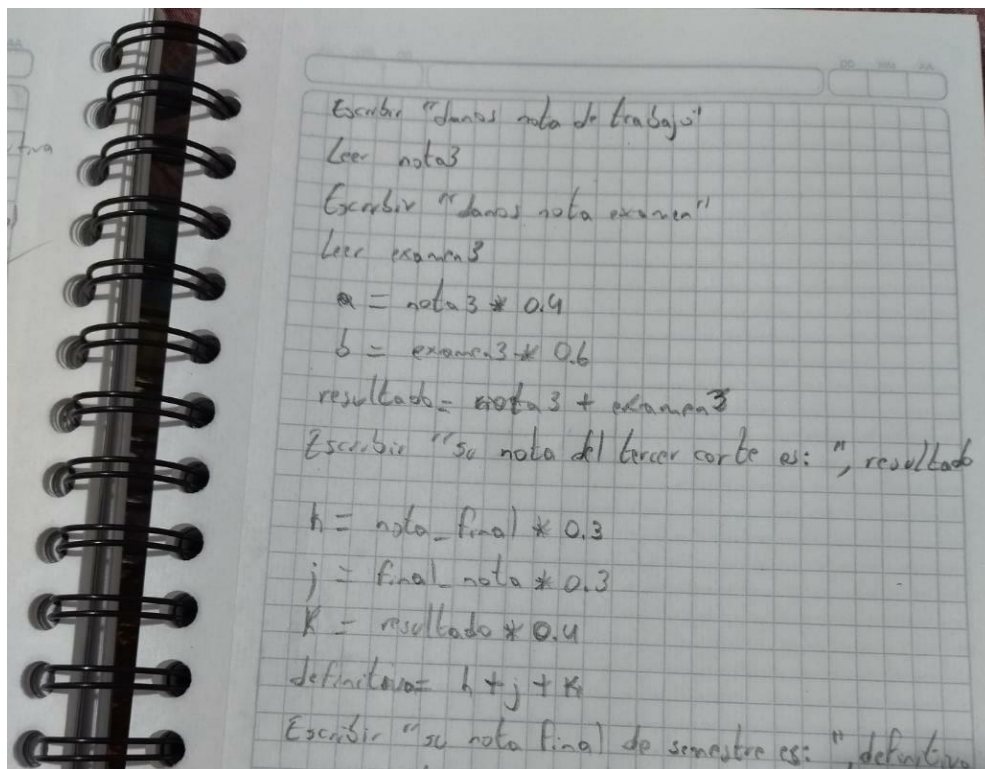 Escribir "danos nota de trabajo"
Leer nota3
Escribir "danos nota examen"
Leer examen3
a = nota3 * 0.4
b = examen3 * 0.6
resultado = nota3 + examen3
Escribir "su nota del tercer corte es: ", resultado
h = nota_final * 0.3
j = final_nota * 0.3
K = resultado * 0.4
definitiva= h + j + K
Escribir "su nota final de semestre es: ", definitiva